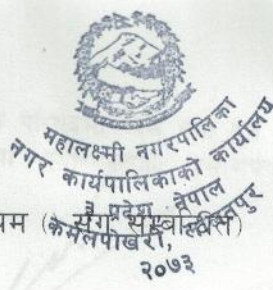 महालक्ष्मी नगरपालिका
नगर कार्यपालिकाको कार्यालय
३ प्रदेश, नेपाल
केमलपोखरी, ललितपुर
२०७३